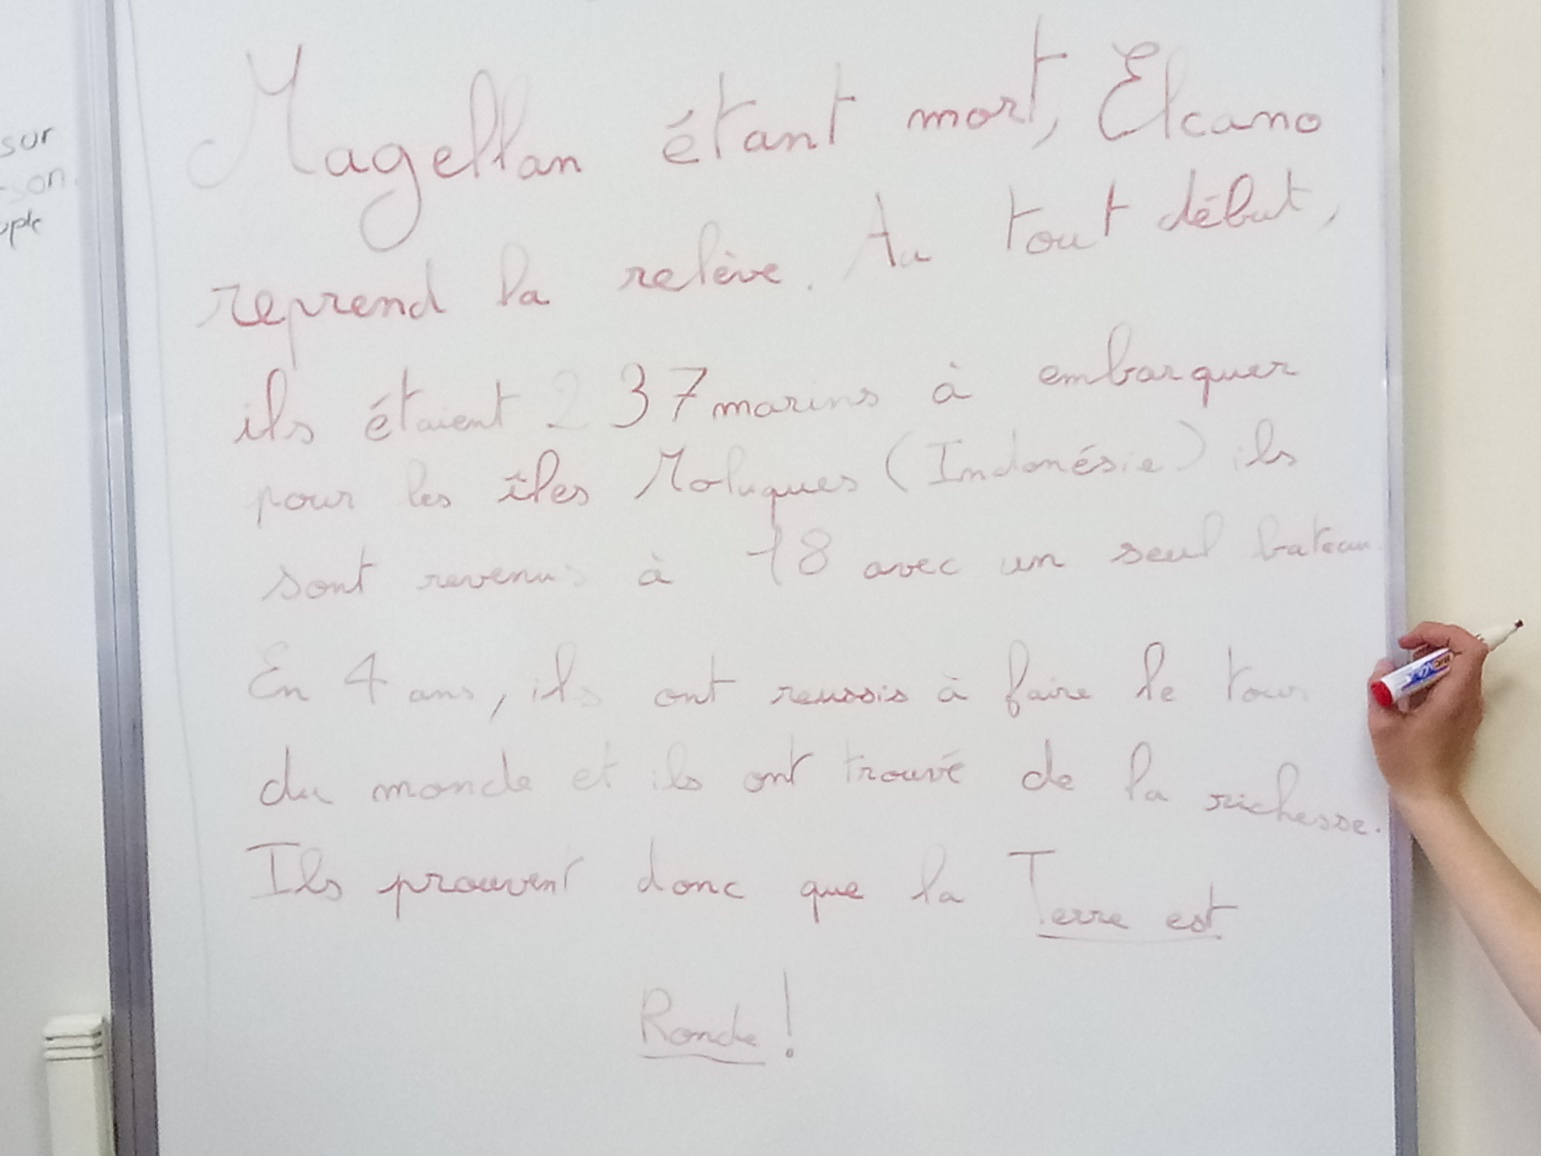 sur
son
Magellan étant mort, Elcano
reprend la relève. Au tout début,
ils étaient 237 marins à embarquer
pour les îles Moluques (Indonésie) ils
sont revenus à 18 avec un seul bateau
En 4 ans, ils ont reussis à faire le tour
du monde et ils ont trouvé de la richesse.
Ils prouvent donc que la Terre est
Ronde !